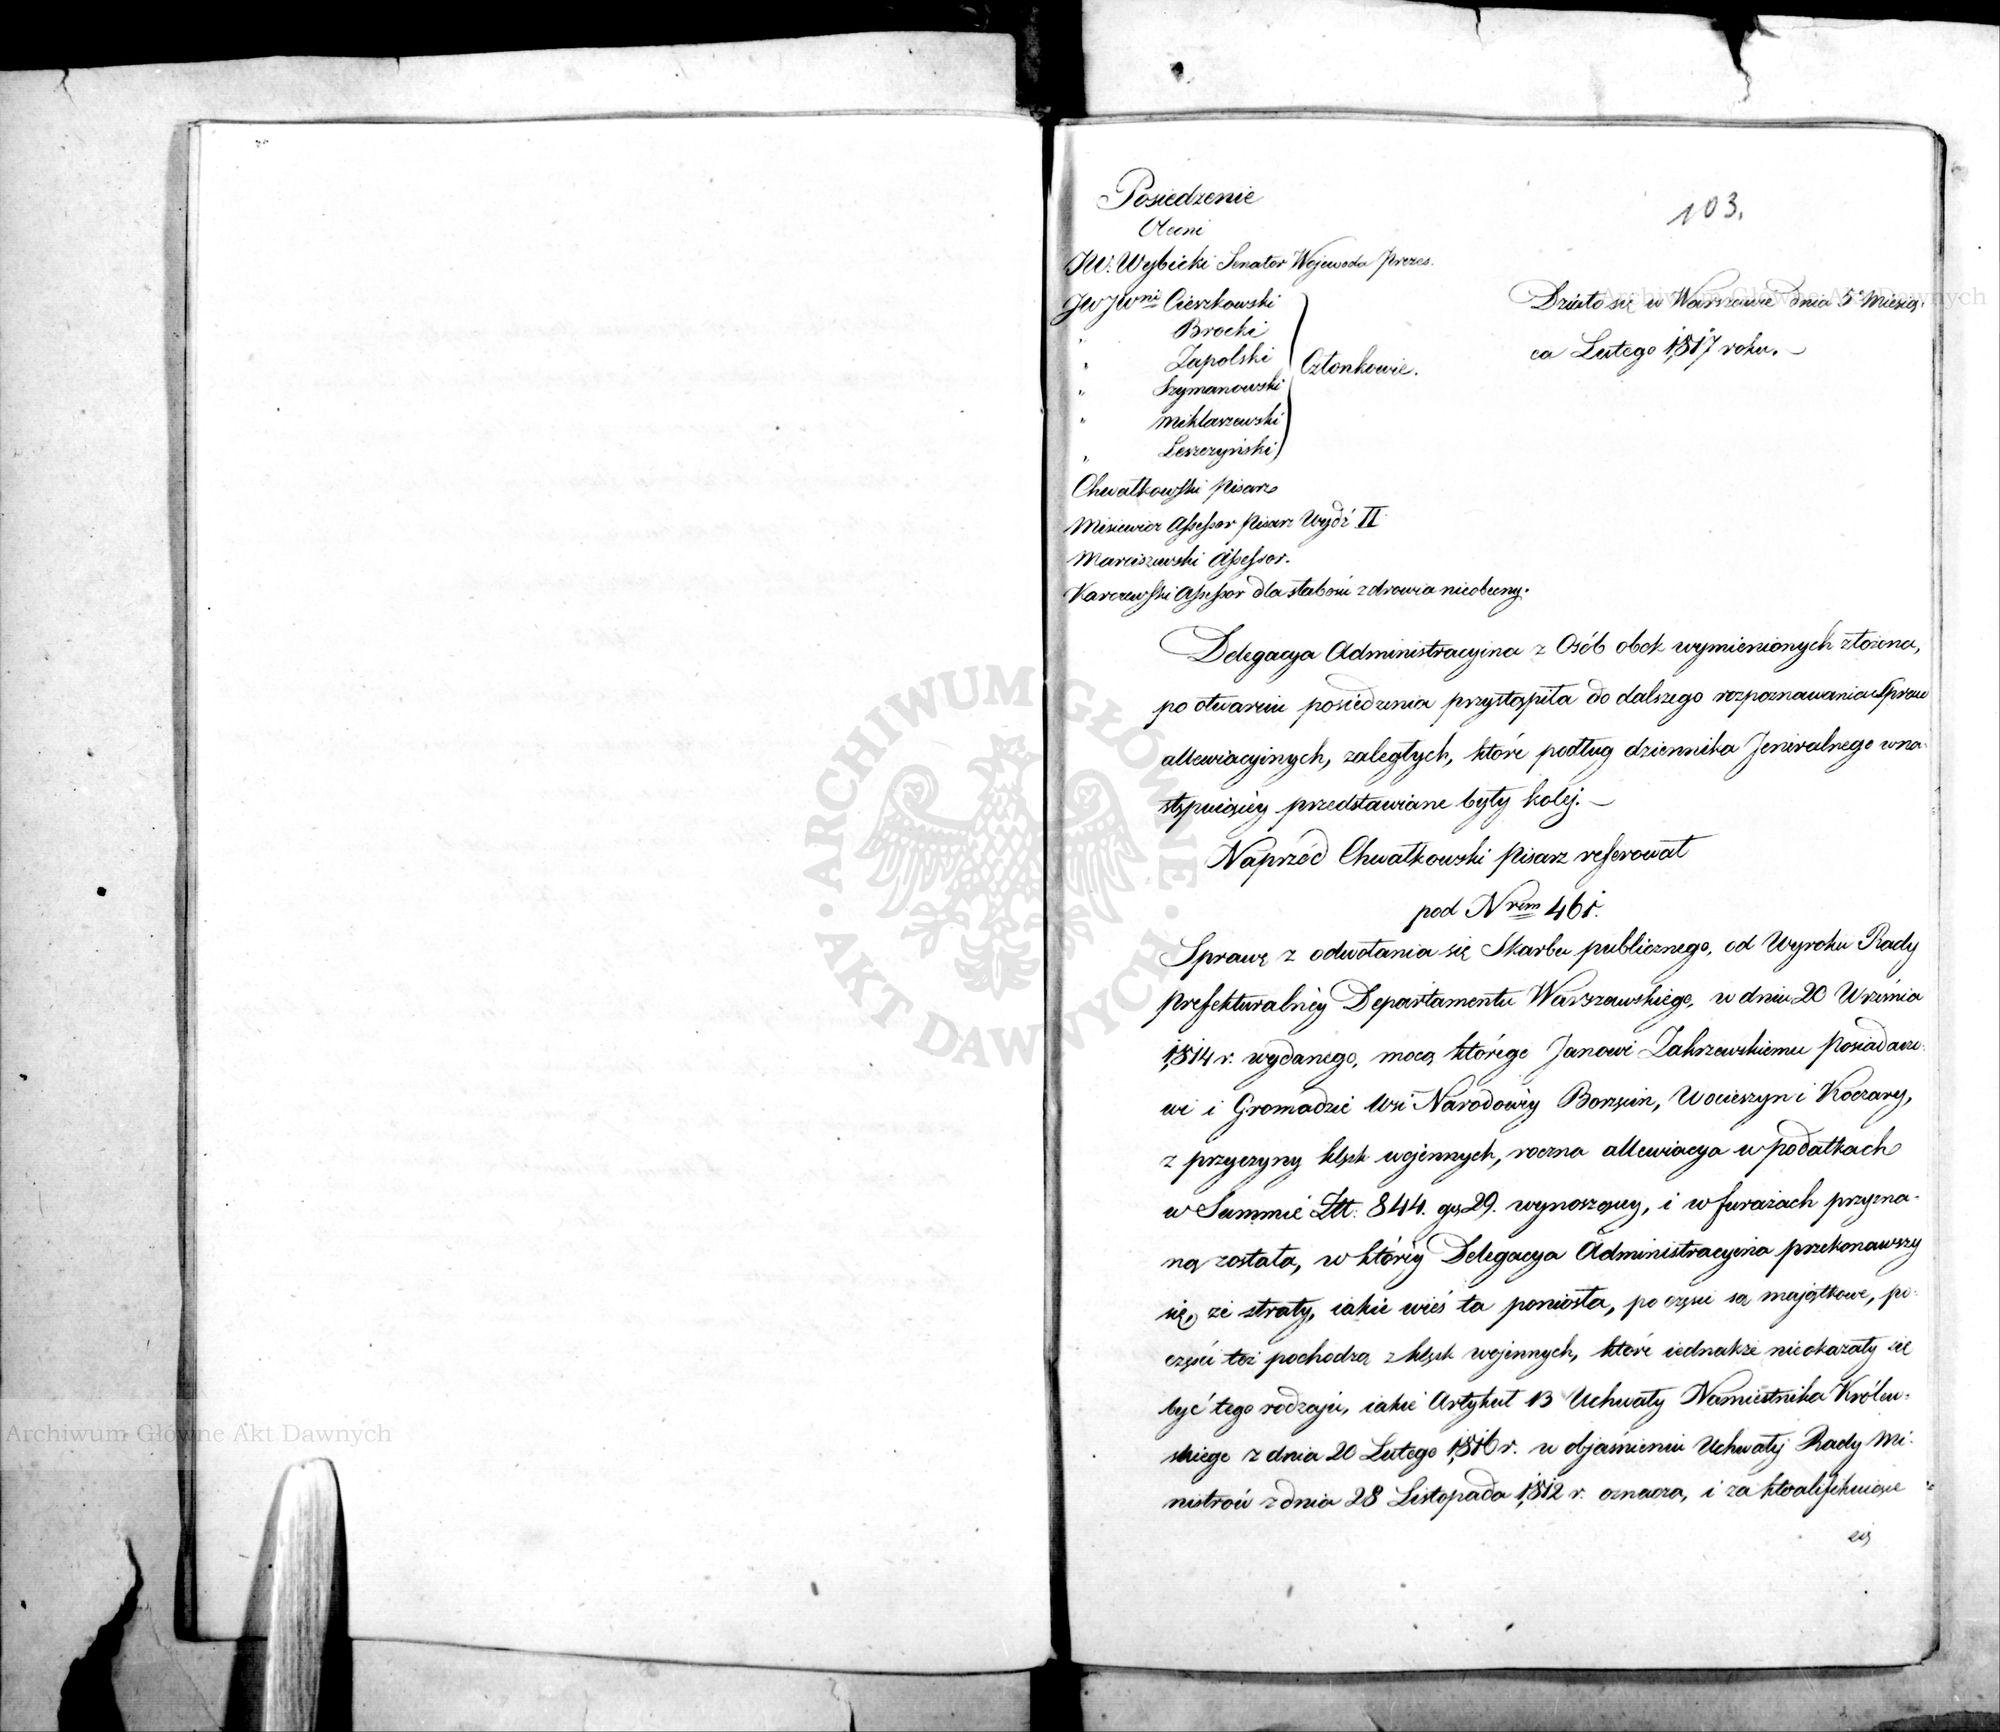 103.
Posiedzenie
Obecni
JW. Wybicki Senator Wojewoda Prezes.
JWJWni Cieszkowski
" Brocki
" Zapolski
" Szymanowski
" Miklaszewski
" Leszczyński
Członkowie.
Chwałkowski Pisarz
Misiewicz Assessor Pisarz Wydź II
Marciszewski Assessor.
Karczewski Assessor dla słabości zdrowia nieobecny.
Działo się w Warszawie dnia 5o Miesią-
ca Lutego 1817 roku.
Delegacya Administracyina z Osób obok wymienionych złożona,
po otwarciu posiedzenia przystąpiła do dalszego rozpoznawania Spraw
allewiacyjnych, zaległych, które podług dziennika Jeneralnego w na-
stępuiącéy przedstawiane były kolej.
Naprzód Chwałkowski Pisarz referował
pod Nrem 461.
Sprawę z odwołania się Skarbu publicznego, od Wyroku Rady
Prefekturalnéy Departamentu Warszawskiego, w dniu 20 Września
1814 r. wydanego, mocą którego Janowi Zakrzewskiemu Posiadaczo-
wi i Gromadzie Wsi Narodowéy Borzęcin, Wocieszyn i Koczary,
z przyczyny klęsk wojennych, roczna allewiacya w podatkach
w Summie Złt: 844. gr 29. wynoszącey, i w furażach przyzna-
ną została, w któréy Delegacya Administracyina przekonawszy
się, że straty, iakie wieś ta poniosła, po części są majątkowe, po-
części też pochodzą z klęsk wojennych, które iednakże nieokazały się
być tego rodzaju, iakie Artykuł 13 Uchwały Namiestnika Królew-
skiego z dnia 20 Lutego 1816 r. w objaśnieniu Uchwały Rady Mi-
nistrów z dnia 28 Listopada 1812 r. oznacza, i za kwalifikuiące
się
Archiwum Główne Akt Dawnych
Archiwum Główne Akt Dawnych
ARCHIWUM GŁÓWNE · AKT DAWNYCH ·